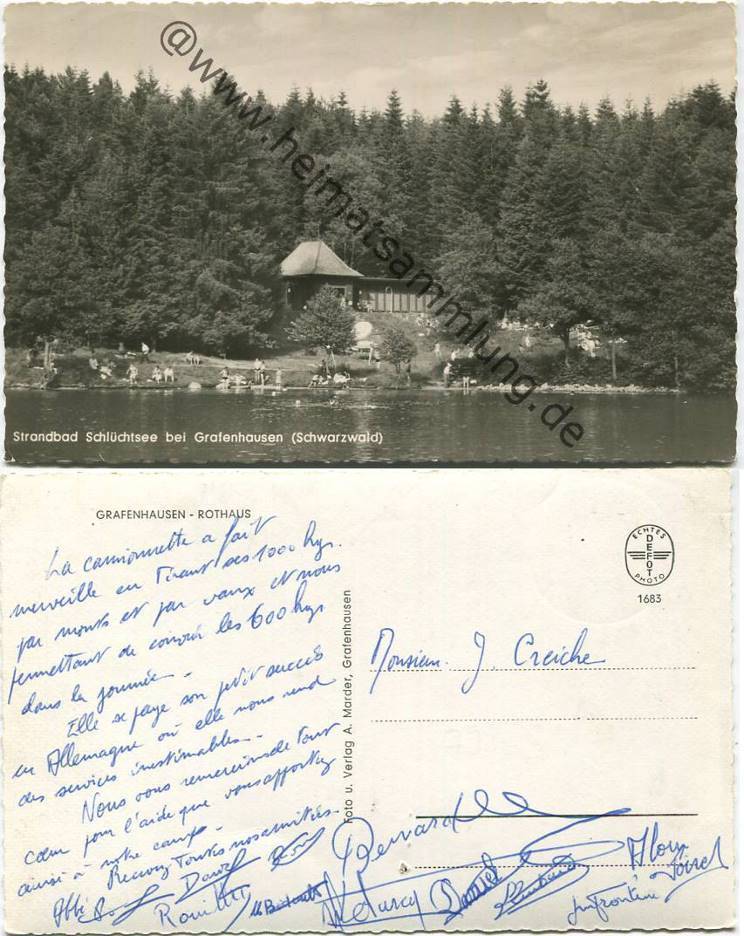 @www.heimatsammlung.de
Strandbad Schlüchtsee bei Grafenhausen (Schwarzwald)
GRAFENHAUSEN - ROTHAUS
La camionnette a fait
merveille en tirant ses 1000 kgs.
par monts et par vaux et nous
permettant de couvrir les 600 kgs
dans la journée.
Elle se paye son petit succès
en Allemagne où elle nous rend
des services inestimables.
Nous vous remercions de tout
cœur pour l'aide que vous apportez
ainsi à notre camp.
Recevez toutes nos amitiés.
Abbé
David
Rouillé
Foto u. Verlag A. Marder, Grafenhausen
ECHTES
DEFOT
PHOTO
1683
Monsieur J. Creiche
Bernard
Daniel